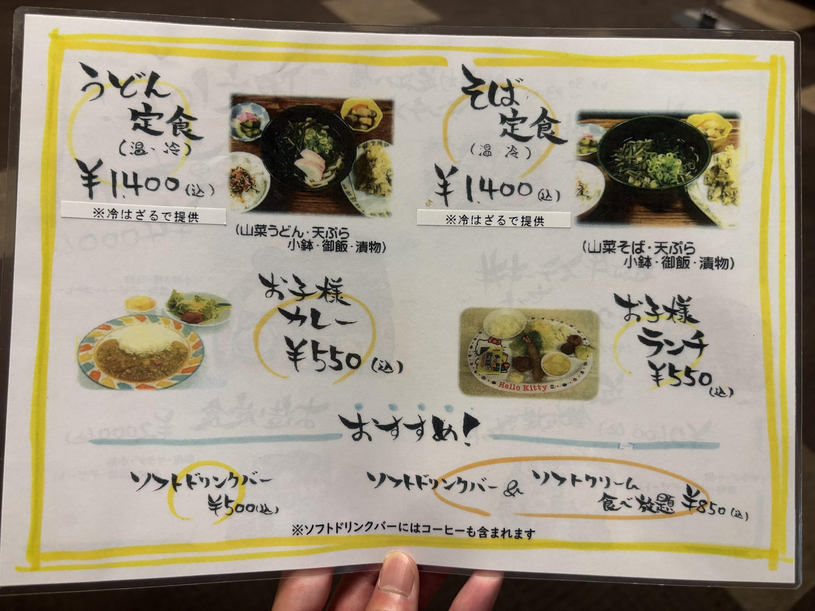 うどん
定食
(温・冷)
¥1,400(込)
※冷はざるで提供
(山菜うどん・天ぷら
小鉢・御飯・漬物)
そば
定食
(温 冷)
¥1,400(込)
※冷はざるで提供
(山菜そば・天ぷら
小鉢・御飯・漬物)
お子様
カレー
¥550(込)
Hello Kitty
お子様
ランチ
¥550
(込)
おすすめ!
ソフトドリンクバー
¥500(込)
ソフトドリンクバー & ソフトクリーム
食べ放題 ¥850(込)
※ソフトドリンクバーにはコーヒーも含まれます